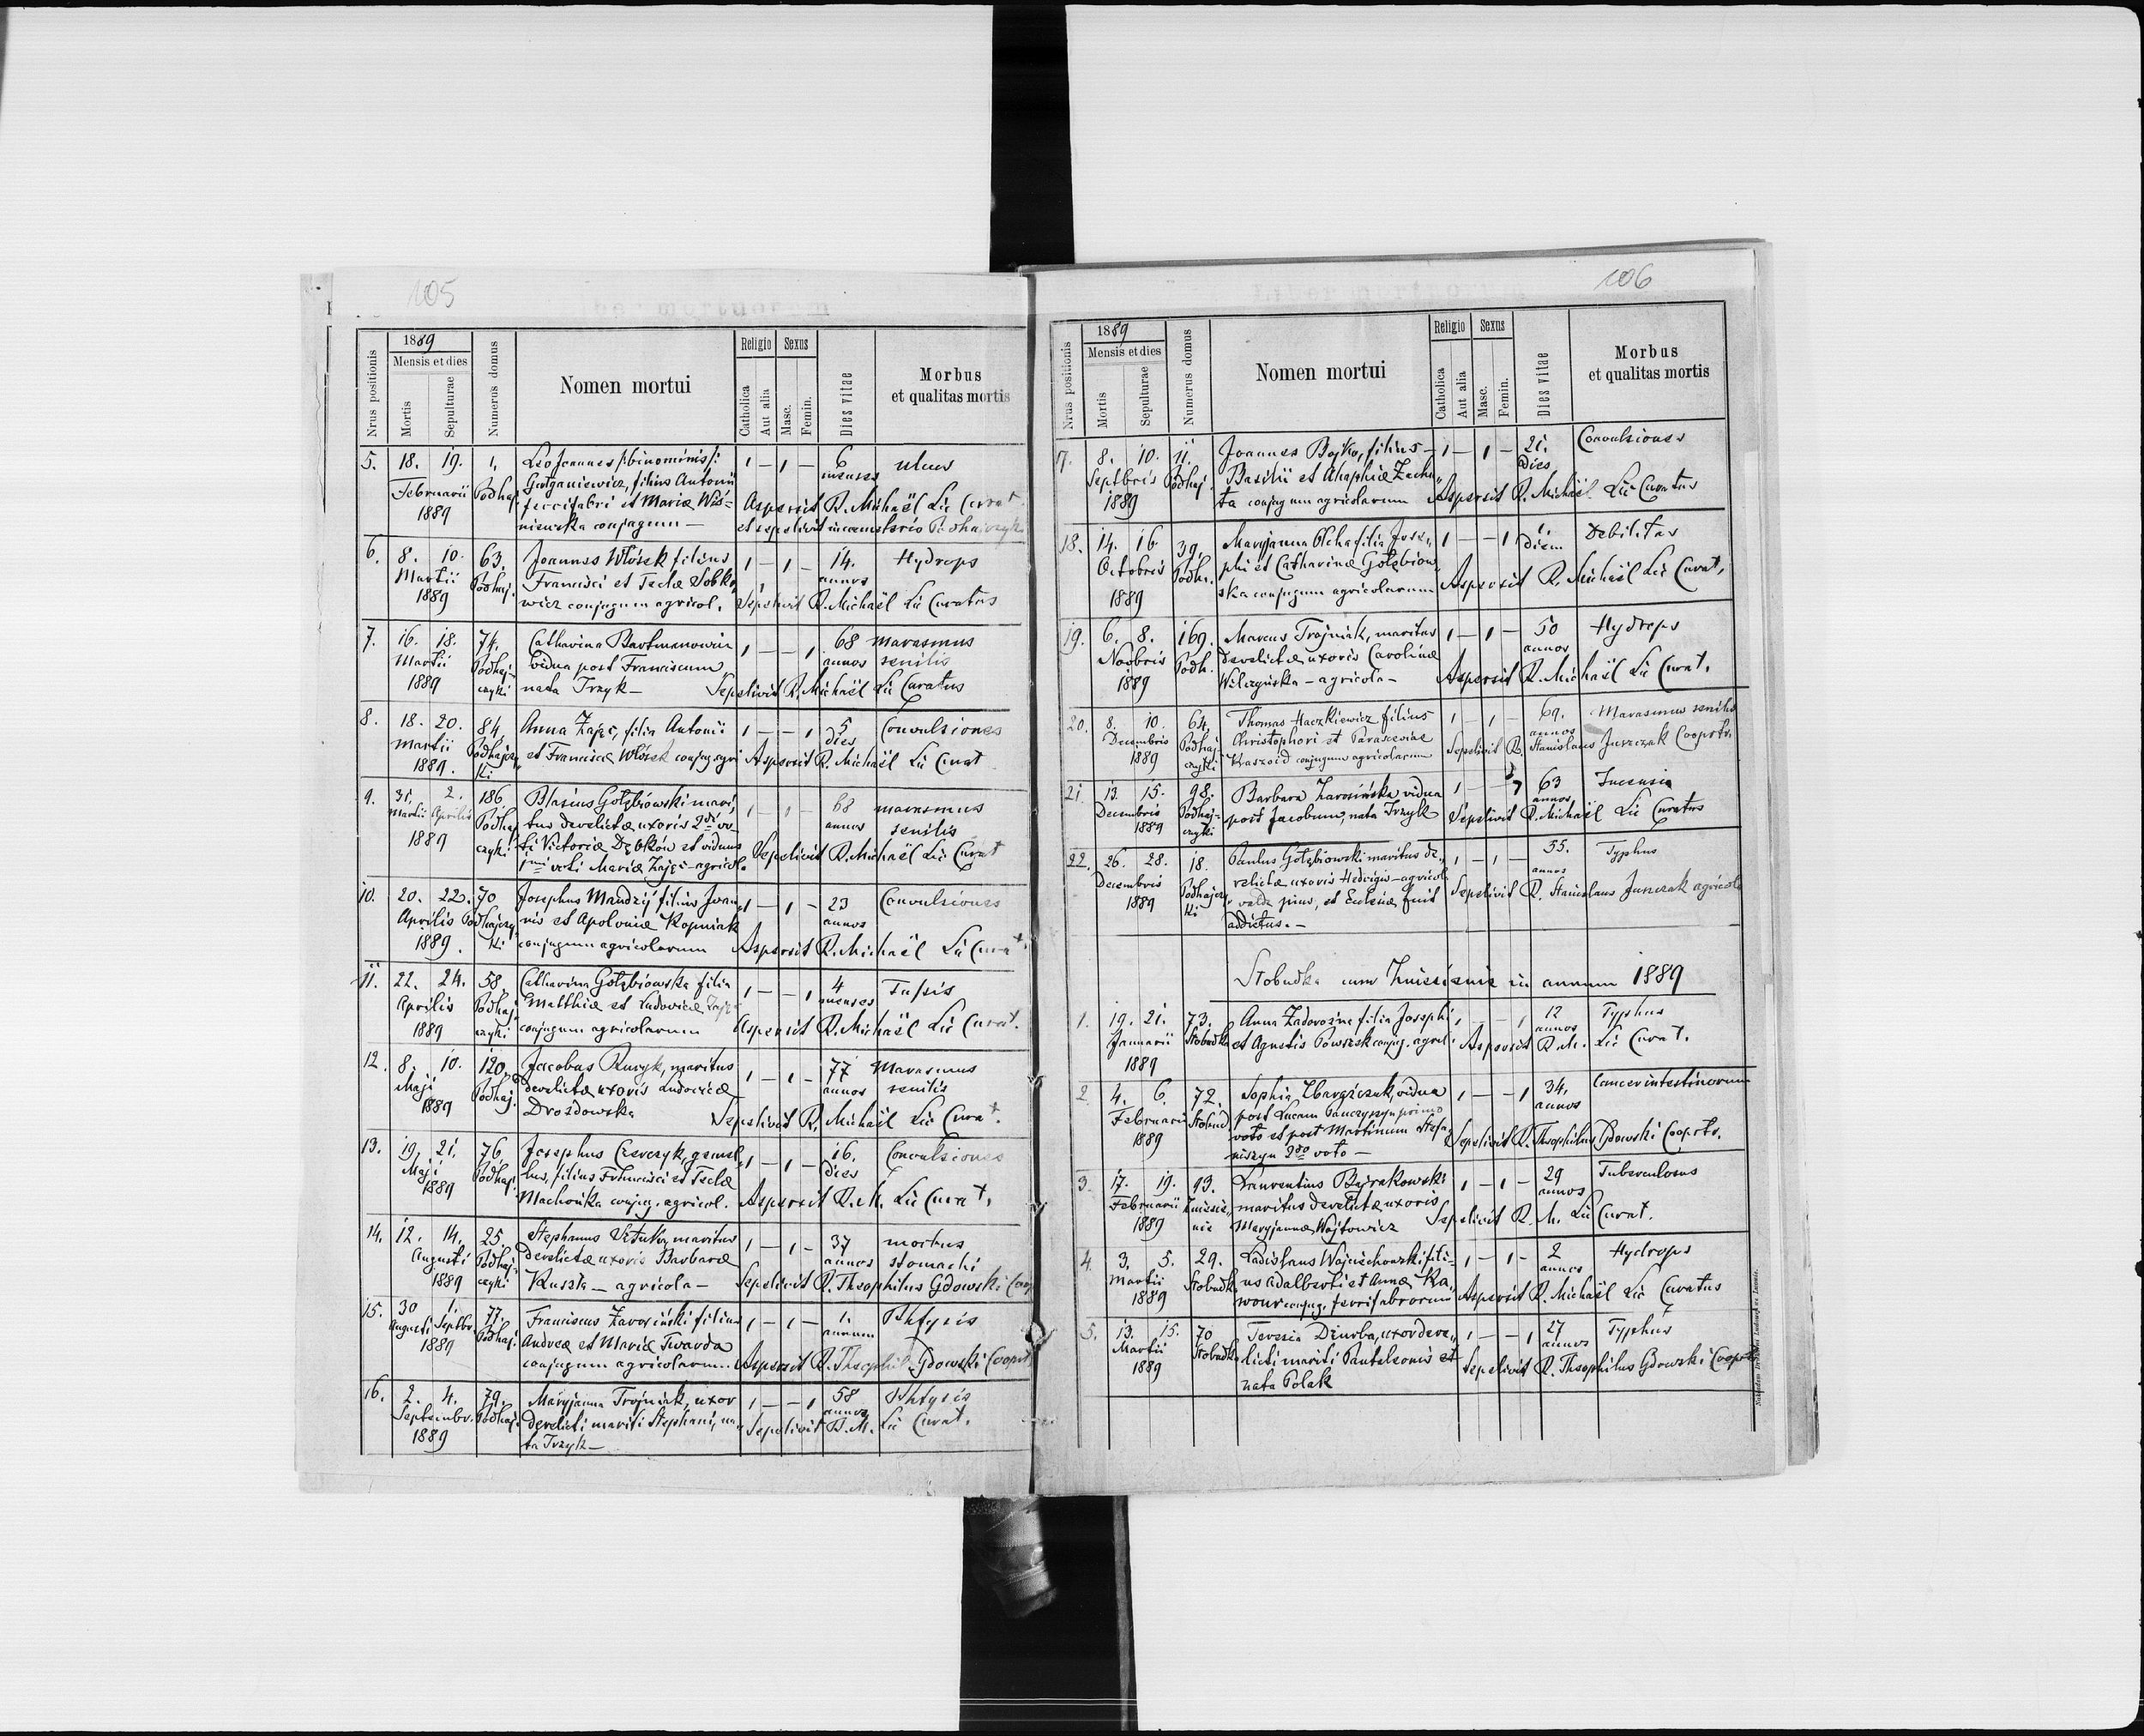 105
1889
Nrus positionis
Mensis et dies
Mortis
Sepulturae
Numerus domus
Nomen mortui
Religio
Catholica
Aut alia
Sexus
Masc.
Femin.
Dies vitae
Morbus
et qualitas mortis
5. 18. 19. 1. Leo Joannes /:binominis/: 1 — 1 — 6 ulcus
Gurganiewicz, filius Antonii menses
Februarii Podhaj. ferrifabri et Mariæ Wiś= Aspersit R. Michaël Lic Curat
1889 niewska conjugum — et sepelivit in cœmeterio Podhajczyki
6. 8. 10. 63. Joannes Włosek filius 1 — 1 — 14. Hydrops
Martii Podhaj. Francisci et Teclæ Sobko annos
1889 wicz conjugum agricol. Sepelivit R. Michaël Lic Curatus
7. 16. 18. 74. Catharina Bartmanowicz 1 — — 1 68 marasmus
Martii Podhaj- vidua post Franciscum, annos senilis
1889 czyki nata Trzyk — Sepelivit R. Michaël Lic Curatus
8. 18. 20. 84. Anna Zając, filia Antonii 1 — — 1 5 Convulsiones
Martii Podhajczy et Franciscæ Włosek conjug. agri dies
1889. ki Aspersit R. Michaël Lic Curat
9. 31. 2. 186 Blasius Gołębiowski mari, 1 — 1 — 68 marasmus
Martii Aprilis Podhaj tus derelictæ uxoris 2di vo annos senilis
1889 czyki ti Victoriæ Dębków et viduus Sepelivit R. Michaël Lic Curat
1mi voti Mariæ Zając - agricol.
10. 20. 22. 70 Josephus Mandzij filius Joan 1 — 1 — 23 Convulsiones
Aprilis Podhajczy nis et Apoloniæ Kopniak annos
1889. ki conjugum agricolarum Aspersit R. Michaël Lic Curat
11. 22. 24. 58. Catharina Gołębiowska filia 1 — — 1 4 Tussis
Aprilis Podhaj Matthiæ et Ludovicæ Zając menses
1889 czyki conjugum agricolarum Aspersit R. Michaël Lic Curat.
12. 8. 10. 120. Jacobus Kuryk, maritus 1 — 1 — 77 Marasmus
Maji Podhaj. derelictæ uxoris Ludovicæ annos senilis
1889 Drozdowska Sepelivit R. Michaël Lic Curat.
13. 19. 21. 76. Josephus Czerczyk, gemel 1 — 1 — 16. Convulsiones
Maji Podhaj. lus, filius Francisci et Teclæ dies
1889 Machońka conjug. agricol. Aspersit R. M. Lic Curat.
14. 12. 14. 25. Stephanus maritus 1 — 1 — 37 morbus
Augusti Podhaj- derelictæ uxoris Barbaræ annos stomachi
1889 czyki Kuszka — agricola — Sepelivit R. Theophilus Gdowski Coop
15. 30 1. 77. Franciscus Zarosiński filius 1 — 1 — 1. Phtysis
Augusti Septbr. Podhaj. Andreæ et Mariæ Twarda annum
1889 conjugum agricolarum Aspersit R. Theophil. Gdowski Cooprt
16. 2. 4. 79. Maryjanna Trojniak, uxor 1 — — 1 58 Phtysis
Septembr. Podhaj. derelicti mariti Stephani, na annos
1889 ta Trzyk — Sepelivit R. M. Lic Curat.
106
1889
Nrus positionis
Mensis et dies
Mortis
Sepulturae
Numerus domus
Nomen mortui
Religio
Catholica
Aut alia
Sexus
Masc.
Femin.
Dies vitae
Morbus
et qualitas mortis
17. 8. 10. 11. Joannes Bojko, filius — 1 — 1 — 21. Convulsiones
Septbris Podhaj. Basilii et Agaphiæ Zachu dies
1889 ta conjugum agricolarum Aspersit R. Michaël Lic Curatus
18. 14. 16 39. Maryjanna Olcha filia Jose, 1 — — 1 1. Debilitas
Octobris Podh. phi et Catharinæ Gołębiow diem
1889 ska conjugum agricolarum Aspersit R. Michaël Lic Curat.
19. 6. 8. 169. Marcus Trojniak, maritus 1 — 1 — 50 Hydrops
Novbris Podh. derelictæ uxoris Carolinæ annos
1889 Wilczyńska — agricola — Aspersit R. Michaël Lic Curat.
20. 8. 10. 64. Thomas Haczkiewicz filius 1 — 1 — 69. Marasmus senilis
Decembris Podhaj Christophori et Parasceviae annos
1889 czyki conjugum agricolarum Sepelivit R. Stanislaus Juszczak Cooprtr.
21. 13. 15. 98. Barbara Zarosińska vidua 1 — — 1 63
Decembris Podhaj- post Jacobum, nata Trzyk annos
1889 czyki Sepelivit R. Michaël Lic Curatus
22. 26. 28. 18. Paulus Gołębiowski maritus de, 1 — 1 — 55. Typhus
Decembris Podhajczy relictæ uxoris Hedvigis — agricol annos
1889 ki valde pius, et Eclesiæ fuit Sepelivit R. Stanislaus Juszczak
addictus. —
Słobudka cum Zniesienie in annum 1889
1. 19. 21. 73. Anna Zadorożna filia Josephi 1 — — 1 12 Typhus
Januarii Słobudka et Agnetis conjug. agrcl. annos
1889 Aspersit R. M. Lic Curat.
2. 4. 6. 72. Sophia vidua 1 — — 1 34. Cancer intestinorum
Februarii Słobud post Lucam Panczyszyn primo annos
1889 voto et post Martinum Stefa, Sepelivit R. Theophilus Gdowski Cooprtr.
niszyn 2do voto —
3. 17. 19. 93. Laurentius Bajrakowski 1 — 1 — 29 Tuberculosus
Februarii Zniesie, maritus derelictæ uxoris annos
1889 nie Maryjannæ Wojtowicz Sepelivit R. M. Lic Curat.
4. 3. 5. 29. Ladislaus Wojciechowski fili= 1 — 1 — 2 Hydrops
Martii Słobudk us Adalberti et Annæ annos
1889 conjug. ferrifabrorum Aspersit R. Michaël Lic Curatus
5. 13. 15. 70 Teresia Dziurba, uxor dere, 1 — — 1 27 Typhus
Martii Słobudk licti mariti Panteleonis et annos
1889 nata Polak Sepelivit R. Theophilus Gdowski Cooprt